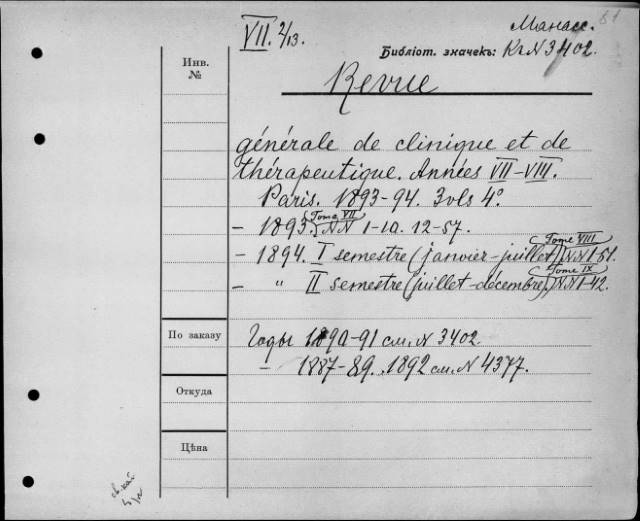 VII. 2/13.
Манасс.
Библіот. значекъ: Кг N 3402.
Инв. №
Revue
générale de clinique et de
thérapeutique. Années VII–VIII.
Paris. 1893-94. 3 vls 4°.
– 1893. (Tome VII) NN 1-10. 12-57.
– 1894. I semestre (janvier-juillet) (Tome VIII) NN 1-51.
– " II semestre (juillet-décembre) (Tome IX) NN 1-42.
По заказу
Годы 1890-91 см. N 3402.
– 1887-89. 1892 см. N 4377.
Откуда
Цѣна